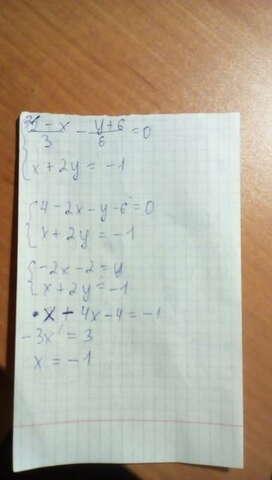 { (2-x)/3 - (y+6)/6 = 0
x + 2y = -1
{ 4 - 2x - y - 6 = 0
x + 2y = -1
{ -2x - 2 = y
x + 2y = -1
x - 4x - 4 = -1
-3x = 3
x = -1